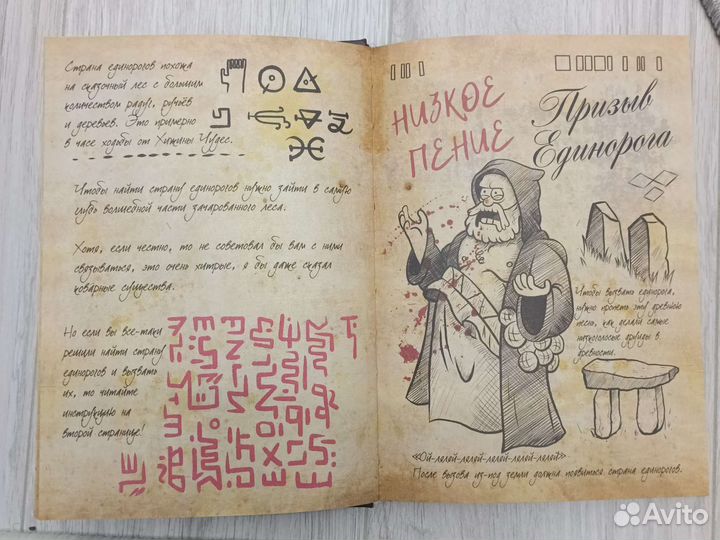 Страна единорогов похожа
на сказочный лес с большим
количеством радуг, ручьёв
и деревьев. Это примерно
в часе ходьбы от Хижины Чудес.
Чтобы найти страну единорогов нужно зайти в самую
глубь волшебной части зачарованного леса.
Хотя, если честно, то не советовал бы вам с ними
связываться, это очень хитрые, я бы даже сказал
коварные существа.
Но если вы все-таки
решили найти страну
единорогов и вызвать
их, то читайте
инструкцию на
второй странице!
НИЗКОЕ
ПЕНИЕ
Призыв
Единорога
Чтобы вызвать единорога,
нужно пропеть эту древнюю
песню, как делали самые
низкоголосые друиды в
древности.
«Ой-лелей-лелей-лелей-лелей-лелей»
После вызова из-под земли должна появиться страна единорогов.
Avito